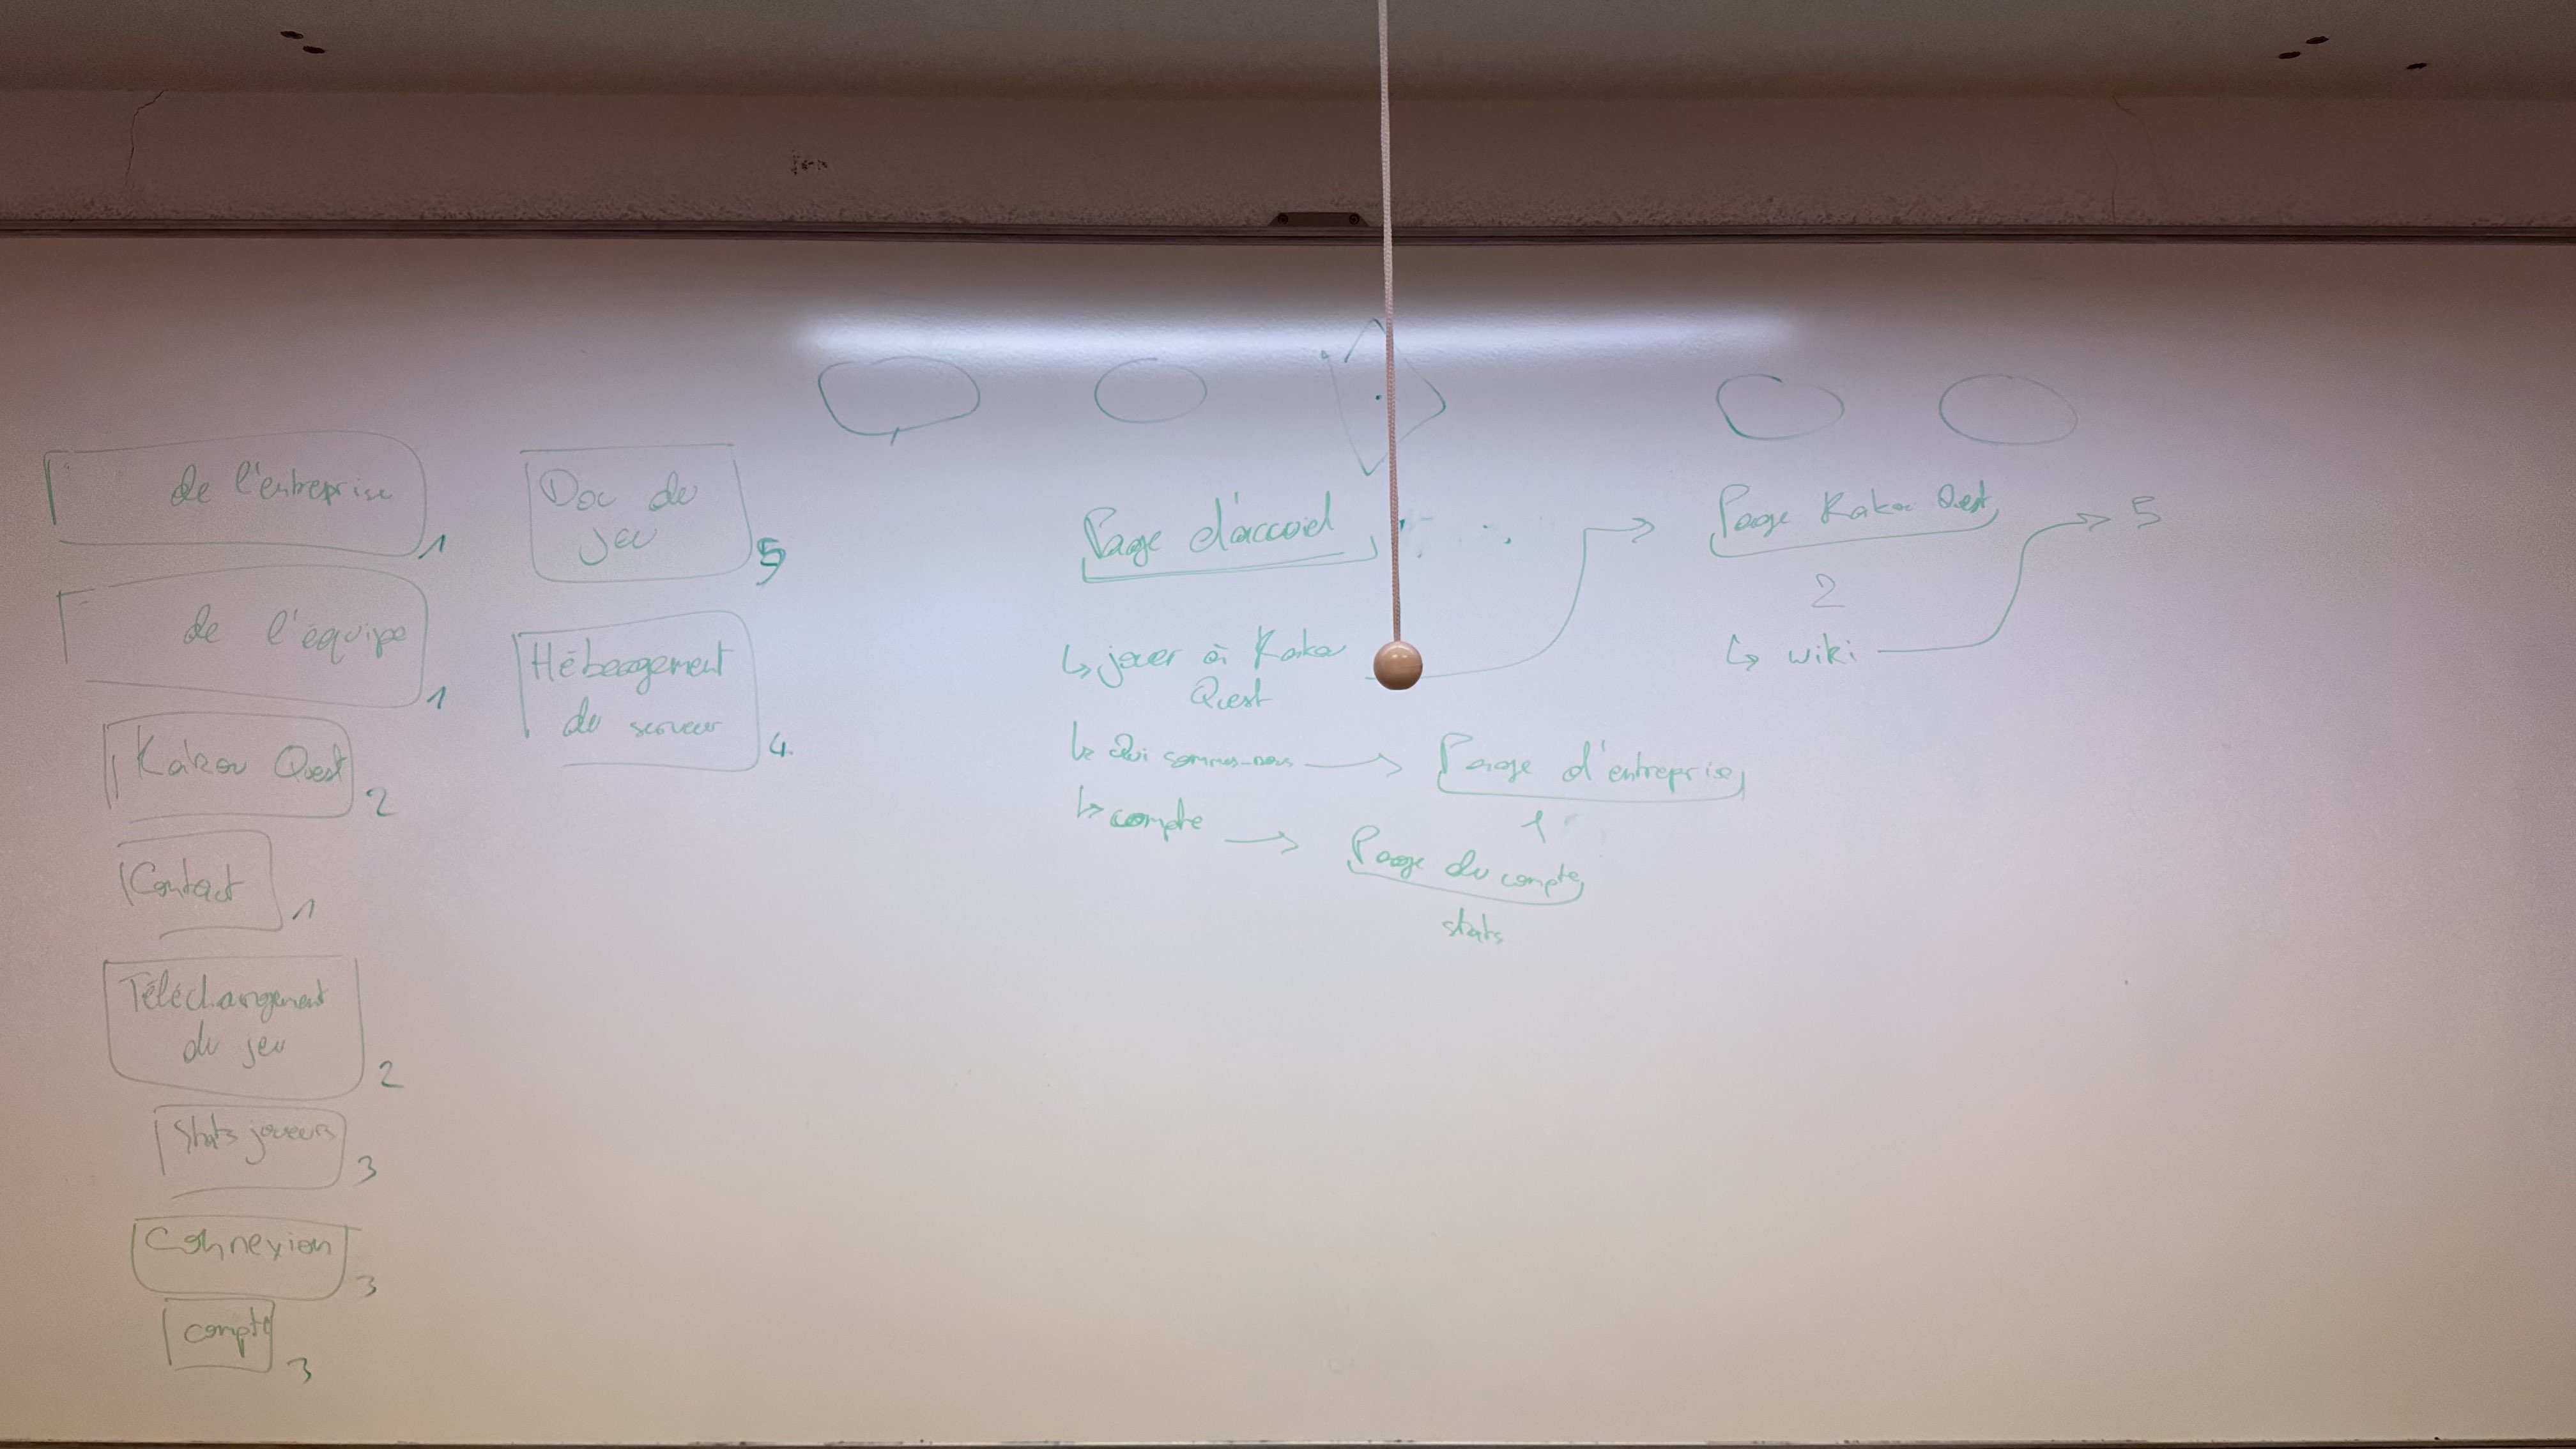 de l'entreprise
1
de l'équipe
1
Kakou Quest
2
Contact
1
Téléchargement
du jeu
2
Stats joueurs
3
Connexion
3
compte
3
Doc du
jeu
5
Hébergement
du serveur
4
Page d'accueil
↳ jouer à Kakou
Quest
↳ Qui sommes-nous → Page d'entreprise
1
↳ compte → Page du compte
stats
Page Kakou Quest → 5
2
↳ wiki